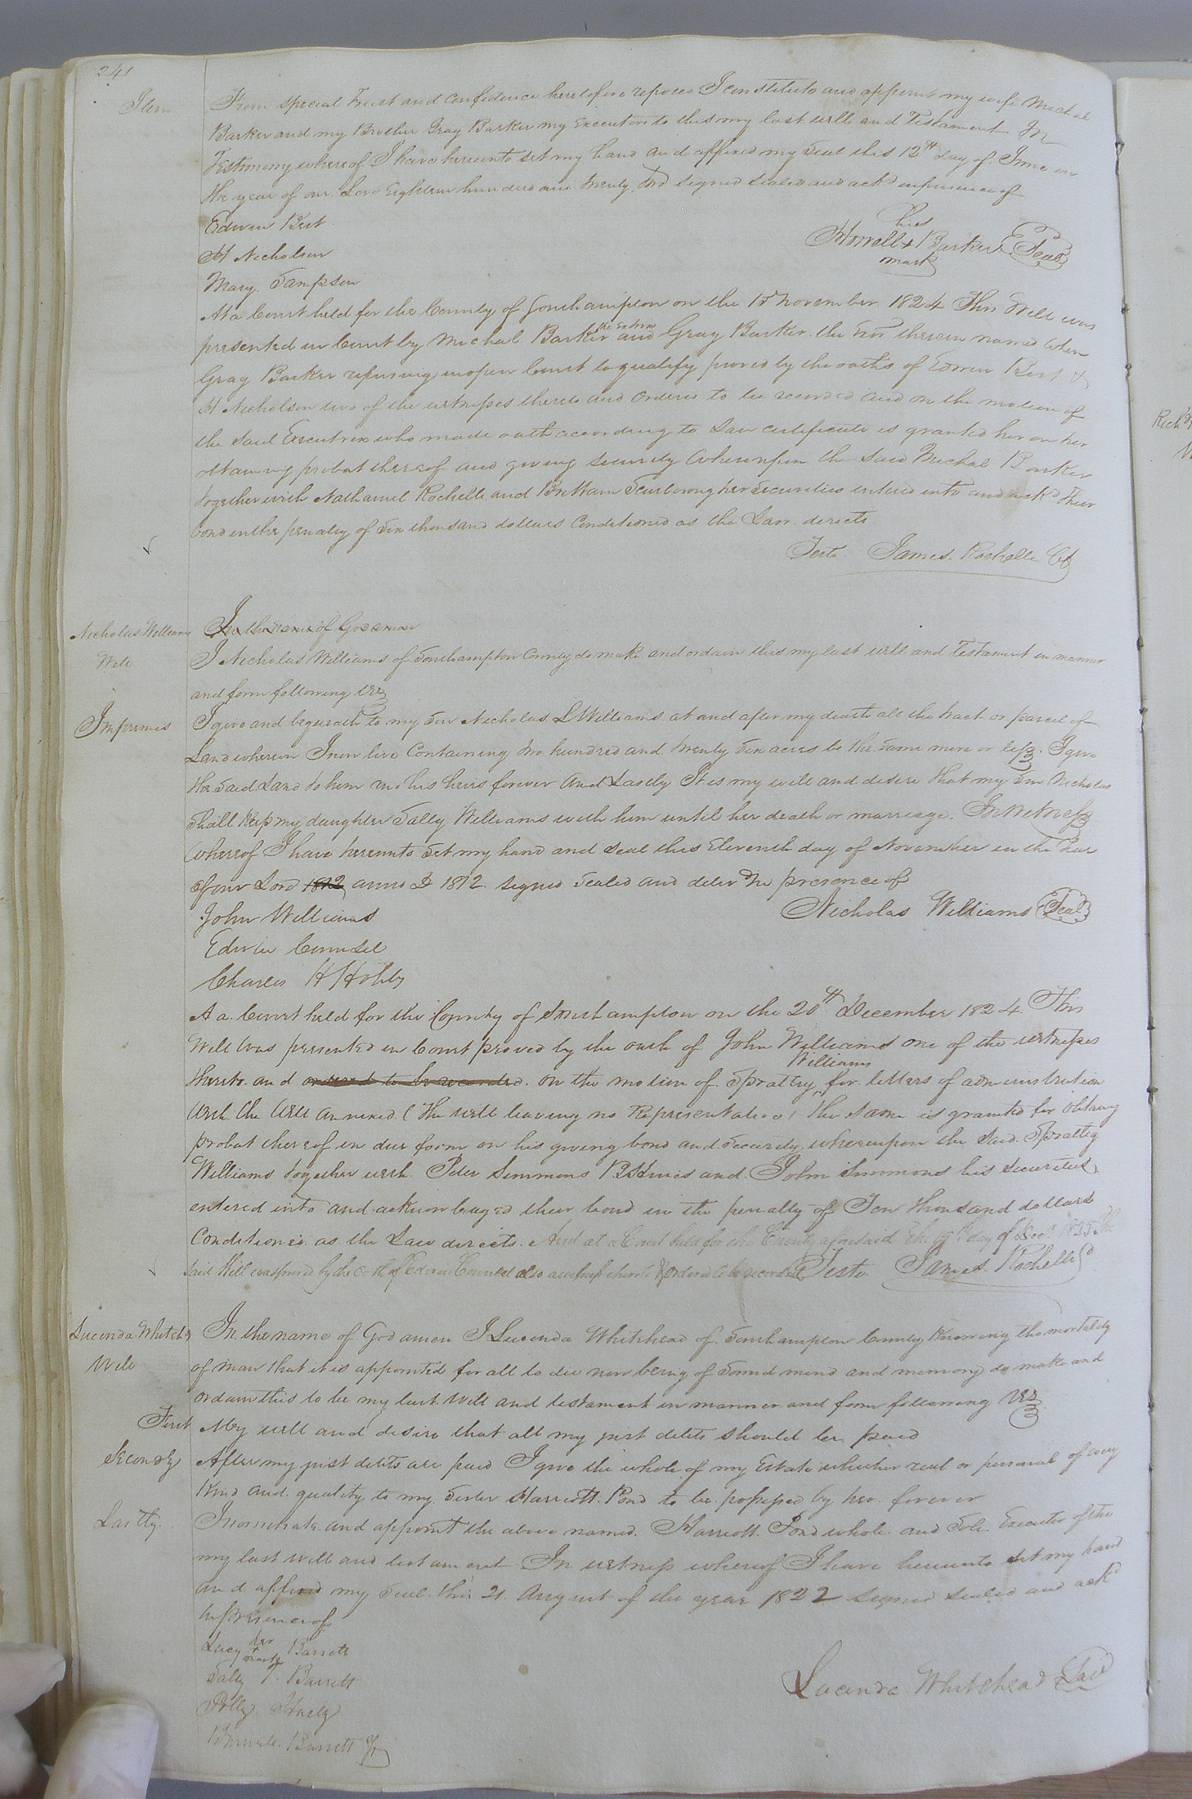 241
Item From special Trust and confidence heretofore reposed I constitute and appoint my wife Michal
Barker and my Brother Gray Barker my Executors to this my last will and Testament In
Testimony whereof I have hereunto set my hand and affixed my Seal this 12th day of June in
the year of our Lord Eighteen hundred and twenty signed sealed and ackd in presence of
Edwin Bert
H Nicholson
Mary Sampson
his
Howell + Barker Seal
mark
At a Court held for the County of Southampton on the 15 November 1824 This Will was
presented in Court by Michal Barker and Gray Barker the therein named when
Gray Barker refusing in open Court to qualify proved by the oaths of Edwin Bert &
H Nicholson two of the witnesses thereto and ordered to be recorded and on the motion of
the said Executrix who made oath according to Law certificate is granted her on her
obtaining probat thereof and giving security Whereupon the said Michal Barker
together with Nathaniel Rochelle and Scarborough her Securities entered into and ackd their
bond in the penalty of Ten thousand dollars Conditioned as the Law directs
Teste James Rochelle Ck
Nicholas Williams In the name of God amen
Will I Nicholas Williams of Southampton County do make and ordain this my last will and Testament in manner
and form following Viz
Imprimis I give and bequeath to my Son Nicholas L Williams at and after my death all the tract or parcel of
Land whereon I now live Containing two hundred and twenty Ten acres be the same more or less. I give
the said Land to him and his heirs forever And Lastly It is my will and desire that my Son Nicholas
shall keep my daughter Sally Williams with him until her death or marriage. In Witness
Whereof I have hereunto Set my hand and seal this Eleventh day of November in the Year
of our Lord 1812 anno D 1812 Signed Sealed and deliv'd In presence of
John Williams
Nicholas Williams Seal
Edwin Counsel
Charles H Holly
At a Court held for the County of Southampton on the 20th December 1824 This
Will Was presented in Court proved by the oath of John Williams one of the witnesses
thereto and ordered to be recorded. on the motion of Spratley Williams for letters of administration
With the Will annexed (The will leaving no Representative) the same is granted for obtaining
probat thereof in due form on his giving bond and Security whereupon the Said Spratley
Williams together with Peter Simmons and John Simmons his Securities
entered into and acknowledged their bond in the penalty of Ten thousand dollars
Conditioned as the Law directs. And at a Court held for the County aforesaid the day of
said Will was proved by the oath of Edwin Counsel also a witness thereto & ordered to be recorded Teste James Rochelle C
Lucinda Whitehd In the name of God amen I Lucinda Whitehead of Southampton County knowing the mortality
Will of man that it is appointed for all to die now being of Sound mind and memory do make and
ordain this to be my last will and testament in manner and form following Viz
First My will and desire that all my just debts should be paid
Secondly After my just debts are paid I give the whole of my Estate whether real or personal of every
Kind and quality to my Sister Harriott Pond to be possessed by her forever
Lastly I nominate and appoint the above named Harriott Pond whole and Sole Executor of this
my last Will and testament In witness whereof I have hereunto set my hand
and affixed my Seal this 21 August of the year 1822 Signed Sealed and ackd
in presence of
Lucy her + mark Barrett
Sally T. Barrett
Lucinda Whitehead Seal
Polly
Barrett Jr